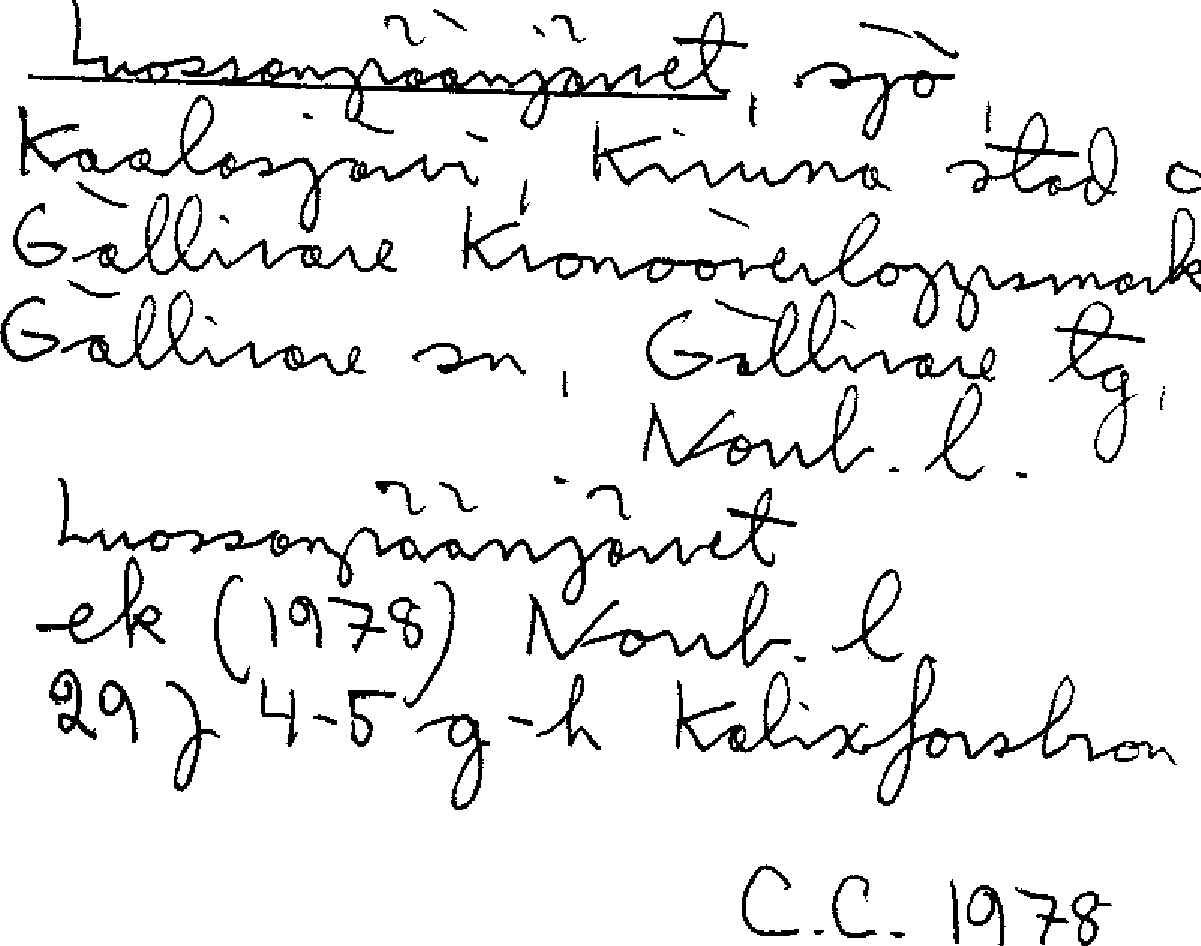 Luossanpäänjärvet, sjö
Kaalasjärvi, Kiruna stad o
Gällivare Kronoöverloppsmark
Gällivare sn, Gällivare tg,
Norrb. l.
Luossanpäänjärvet
ek (1978) Norrb. l.
29 J 4-5 g-h Kalixforsbron
C.C. 1978